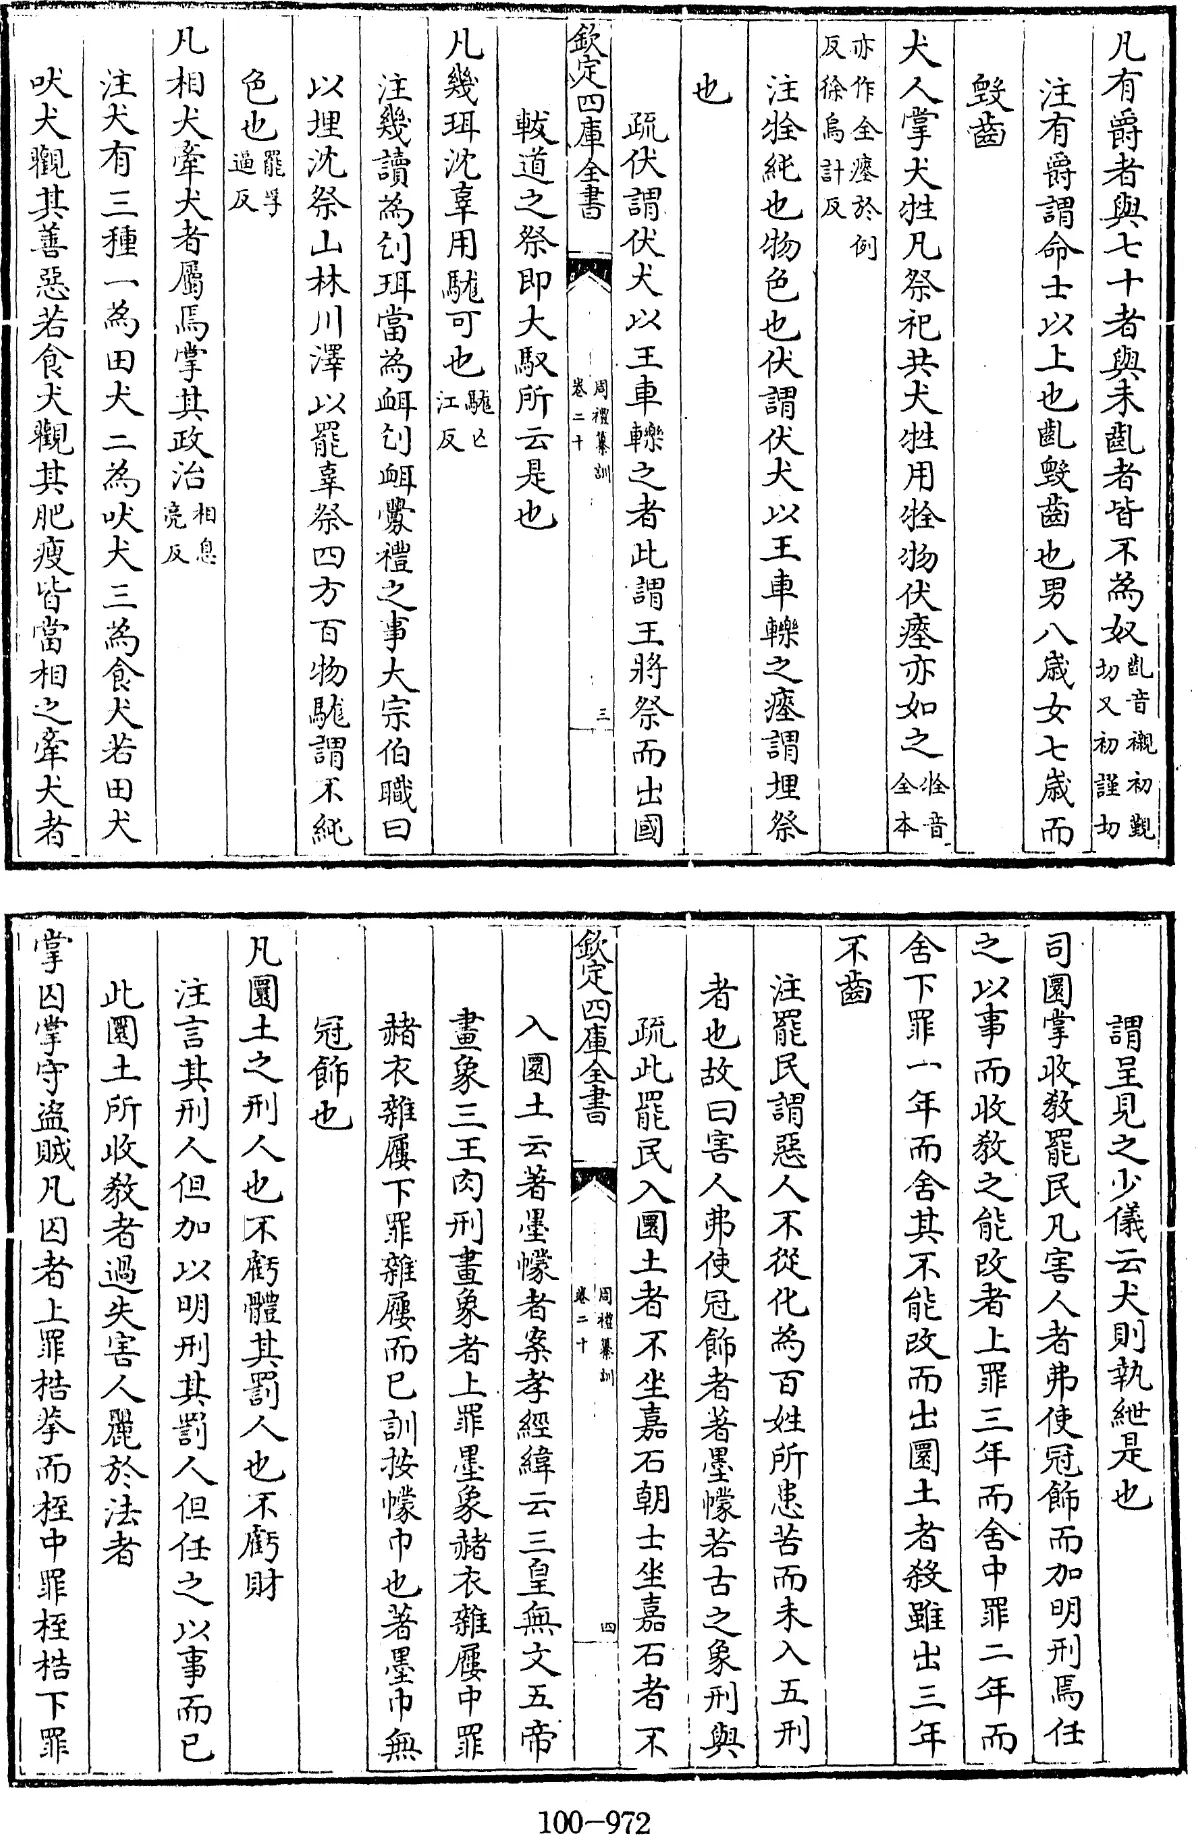 凡有爵者與七十者與未齓者皆不為奴齓音襯初覲切又初謹切
注有爵謂命士以上也齓毀齒也男八歳女七歳而
毀齒
犬人掌犬牲凡祭祀共犬牲用牷物伏瘞亦如之牷音全本
亦作全瘞於例反徐烏計反
注牷純也物色也伏謂伏犬以王車轢之瘞謂埋祭
也
疏伏謂伏犬以王車轢之者此謂王將祭而出國
欽定四庫全書
周禮纂訓
卷二十
三
軷道之祭即大馭所云是也
凡幾珥沈辜用駹可也駹亡江反
注幾讀為刉珥當為衈刉衈釁禮之事大宗伯職曰
以埋沈祭山林川澤以罷辜祭四方百物駹謂不純
色也罷孚逼反
凡相犬牽犬者屬焉掌其政治相息亮反
注犬有三種一為田犬二為吠犬三為食犬若田犬
吠犬觀其善惡若食犬觀其肥瘦皆當相之牽犬者
謂呈見之少儀云犬則執紲是也
司圜掌收敎罷民凡害人者弗使冠飾而加明刑焉任
之以事而收敎之能改者上罪三年而舍中罪二年而
舍下罪一年而舍其不能改而出圜土者殺雖出三年
不齒
注罷民謂惡人不從化為百姓所患苦而未入五刑
者也故曰害人弗使冠飾者著墨幪若古之象刑與
疏此罷民入圜土者不坐嘉石朝士坐嘉石者不
欽定四庫全書
周禮纂訓
卷二十
四
入圜土云著墨幪者案孝經緯云三皇無文五帝
畫象三王肉刑畫象者上罪墨象赭衣雜屨中罪
赭衣雜屨下罪雜屨而已訓按幪巾也著墨巾無
冠飾也
凡圜土之刑人也不虧體其罰人也不虧財
注言其刑人但加以明刑其罰人但任之以事而已
此圜土所收敎者過失害人麗於法者
掌囚掌守盜賊凡囚者上罪梏拲而桎中罪桎梏下罪
100-972